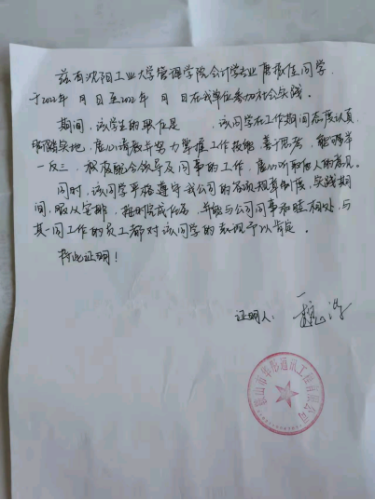 兹有沈阳工业大学管理学院会计学专业唐张佳同学,
于2022年 月 日至2022年 月 日在我单位参加社会实践。
期间,该学生的职位是 ,该同学在工作期间态度认真
踏踏实地,虚心请教并努力掌握工作技能,善于思考,能够举
一反三,积极配合领导及同事的工作,虚心听取他人的意见。
同时,该同学严格遵守我公司的各项规章制度,实践期
间,服从安排,按时完成任务,并能与公司同事和睦相处,与
其一同工作的员工都对该同学的表现予以肯定。
特此证明!
证明人: